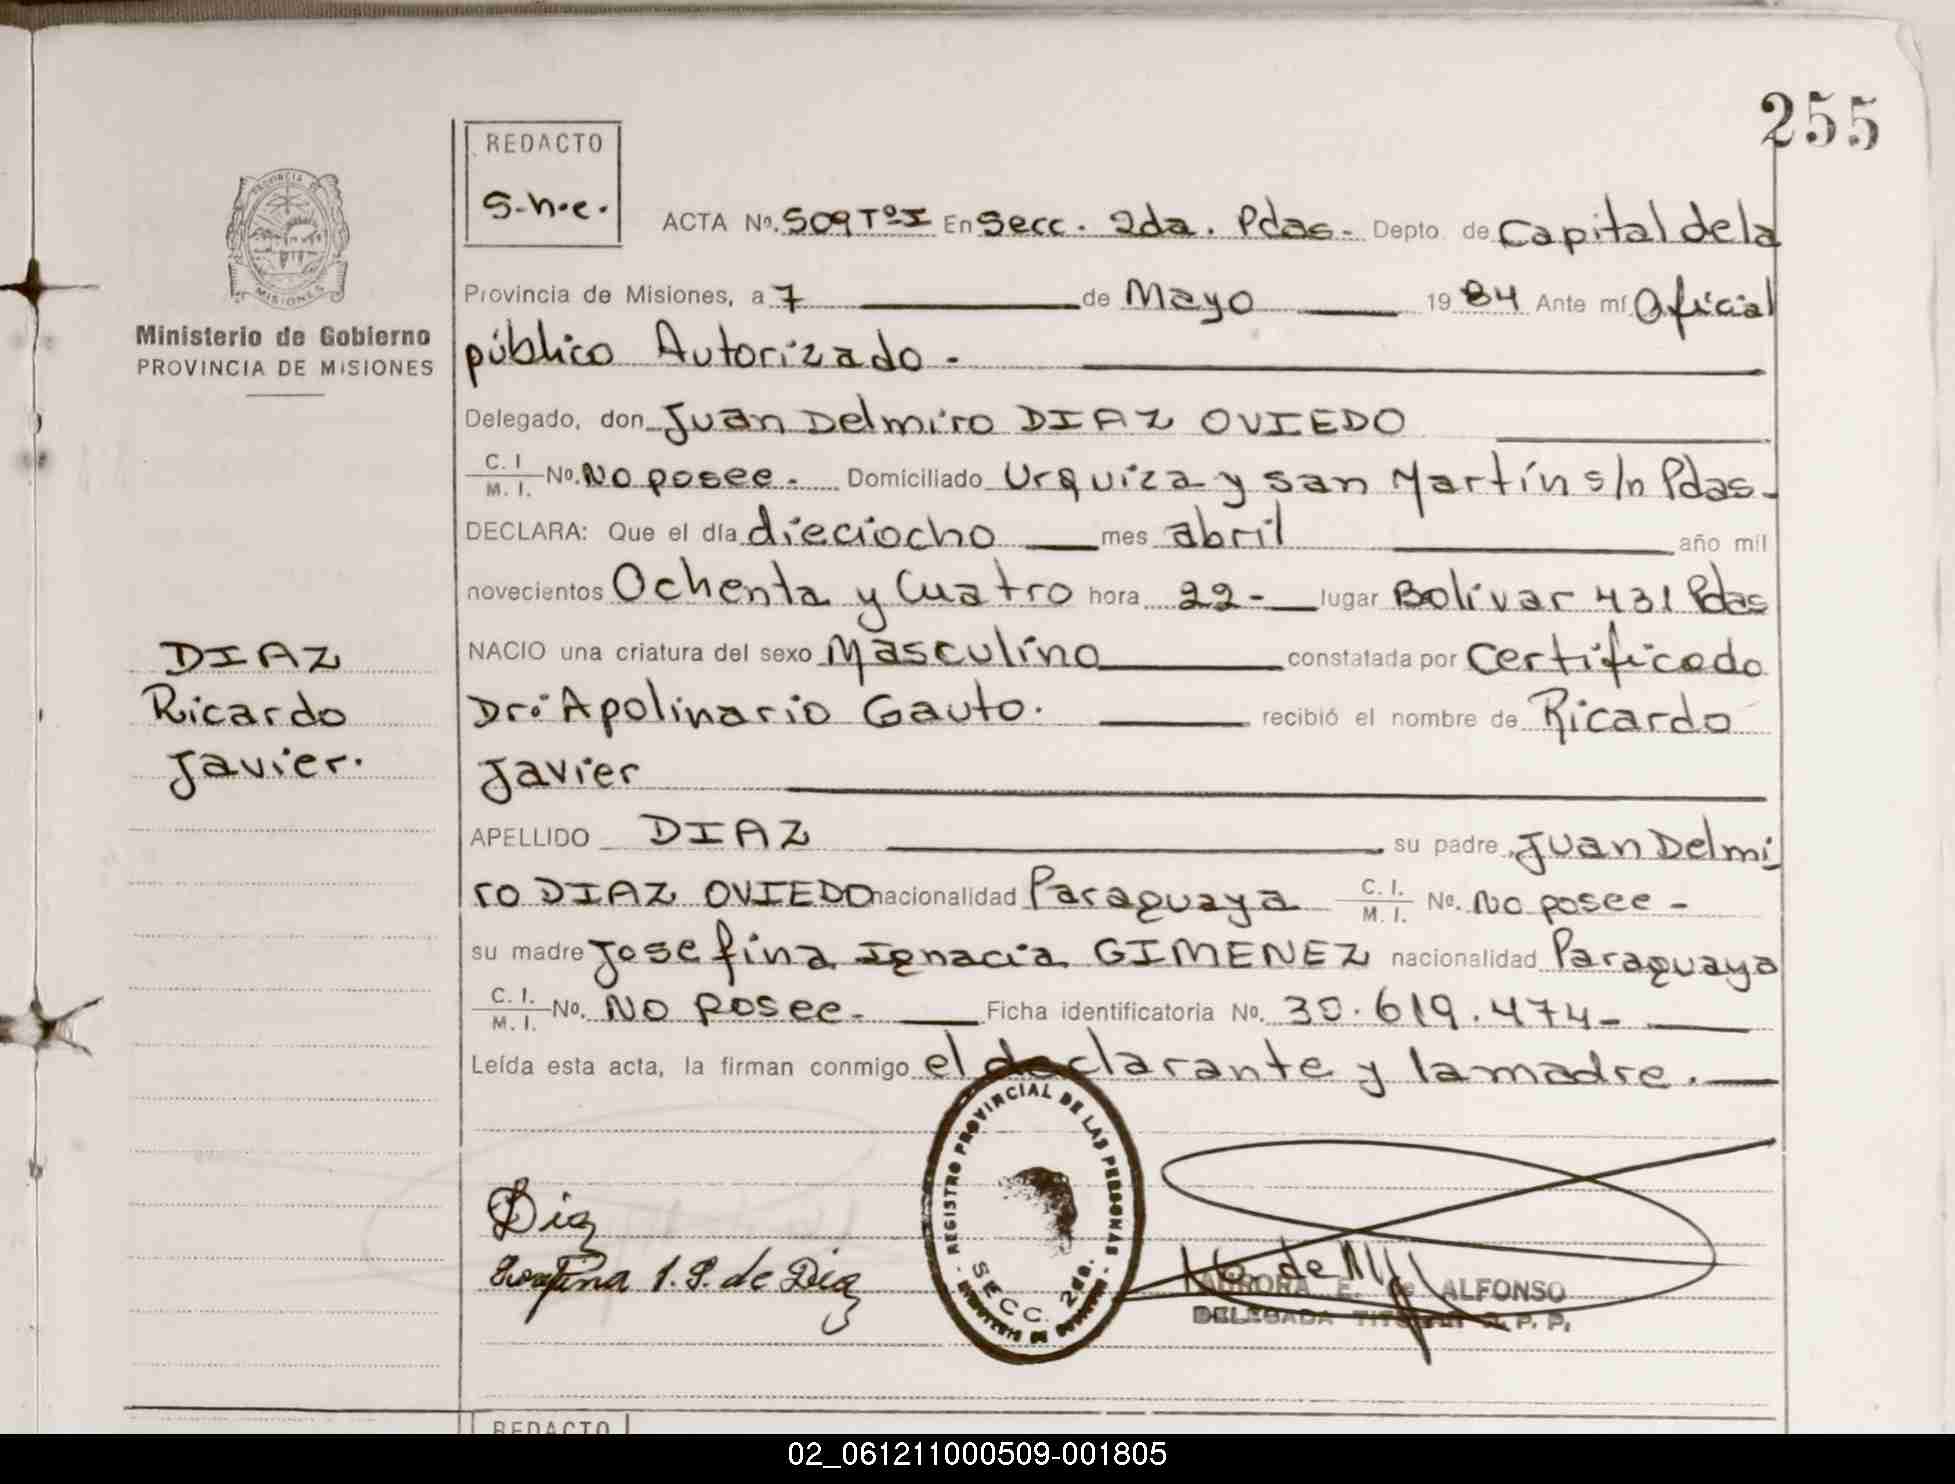 255
REDACTO
S-h-e.
PROVINCIA DE
MISIONES
Ministerio de Gobierno
PROVINCIA DE MISIONES
ACTA No. 509 Tº I En Secc. 2da. Pdas. Depto. de Capital de la
Provincia de Misiones, a 7 de Mayo 1984 Ante mí Oficial
público Autorizado.
Delegado, don Juan Delmiro DIAZ OVIEDO
C. I. M. I. No. No posee. Domiciliado Urquiza y san Martín s/n Pdas.
DECLARA: Que el día dieciocho mes abril año mil
novecientos Ochenta y Cuatro hora 22- lugar Bolivar 431 Pdas
NACIO una criatura del sexo Masculino constatada por Certificado
Dr: Apolinario Gauto. recibió el nombre de Ricardo
Javier
DIAZ
Ricardo
Javier.
APELLIDO DIAZ su padre Juan Delmi
ro DIAZ OVIEDO nacionalidad Paraguaya C. I. M. I. No. No posee -
su madre Josefina Ignacia GIMENEZ nacionalidad Paraguaya
C. I. M. I. No. No posee. Ficha identificatoria No. 30.619.474-
Leída esta acta, la firman conmigo el declarante y la madre.
REGISTRO PROVINCIAL DE LAS PERSONAS
SECC. 2da.
Diaz
Josefina I. G. de Diaz
AURORA E. de ALFONSO
DELEGADA TITULAR R. P. P.
REDACTO
02_061211000509-001805